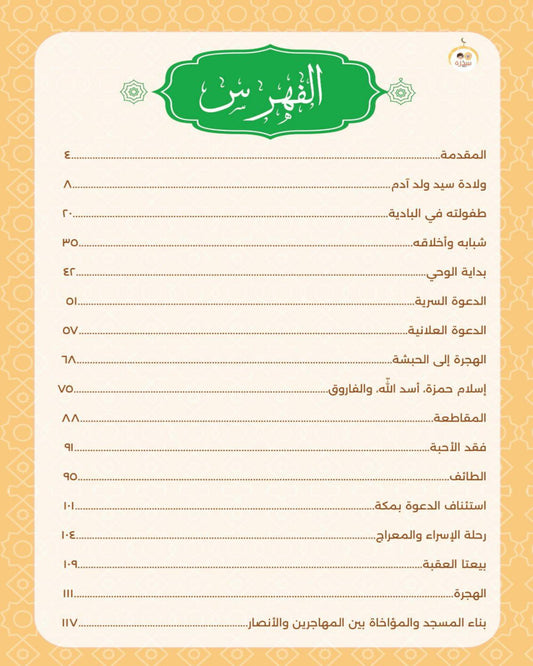 سيرة
الفهرس
المقدمة......................................................................٤
ولادة سيد ولد آدم......................................................................٨
طفولته في البادية......................................................................٢٠
شبابه وأخلاقه......................................................................٣٥
بداية الوحي......................................................................٤٢
الدعوة السرية......................................................................٥١
الدعوة العلانية......................................................................٥٧
الهجرة إلى الحبشة......................................................................٦٨
إسلام حمزة، أسد الله، والفاروق......................................................................٧٥
المقاطعة......................................................................٨٨
فقد الأحبة......................................................................٩١
الطائف......................................................................٩٥
استئناف الدعوة بمكة......................................................................١٠١
رحلة الإسراء والمعراج......................................................................١٠٤
بيعتا العقبة......................................................................١٠٩
الهجرة......................................................................١١١
بناء المسجد والمؤاخاة بين المهاجرين والأنصار............................................١١٧